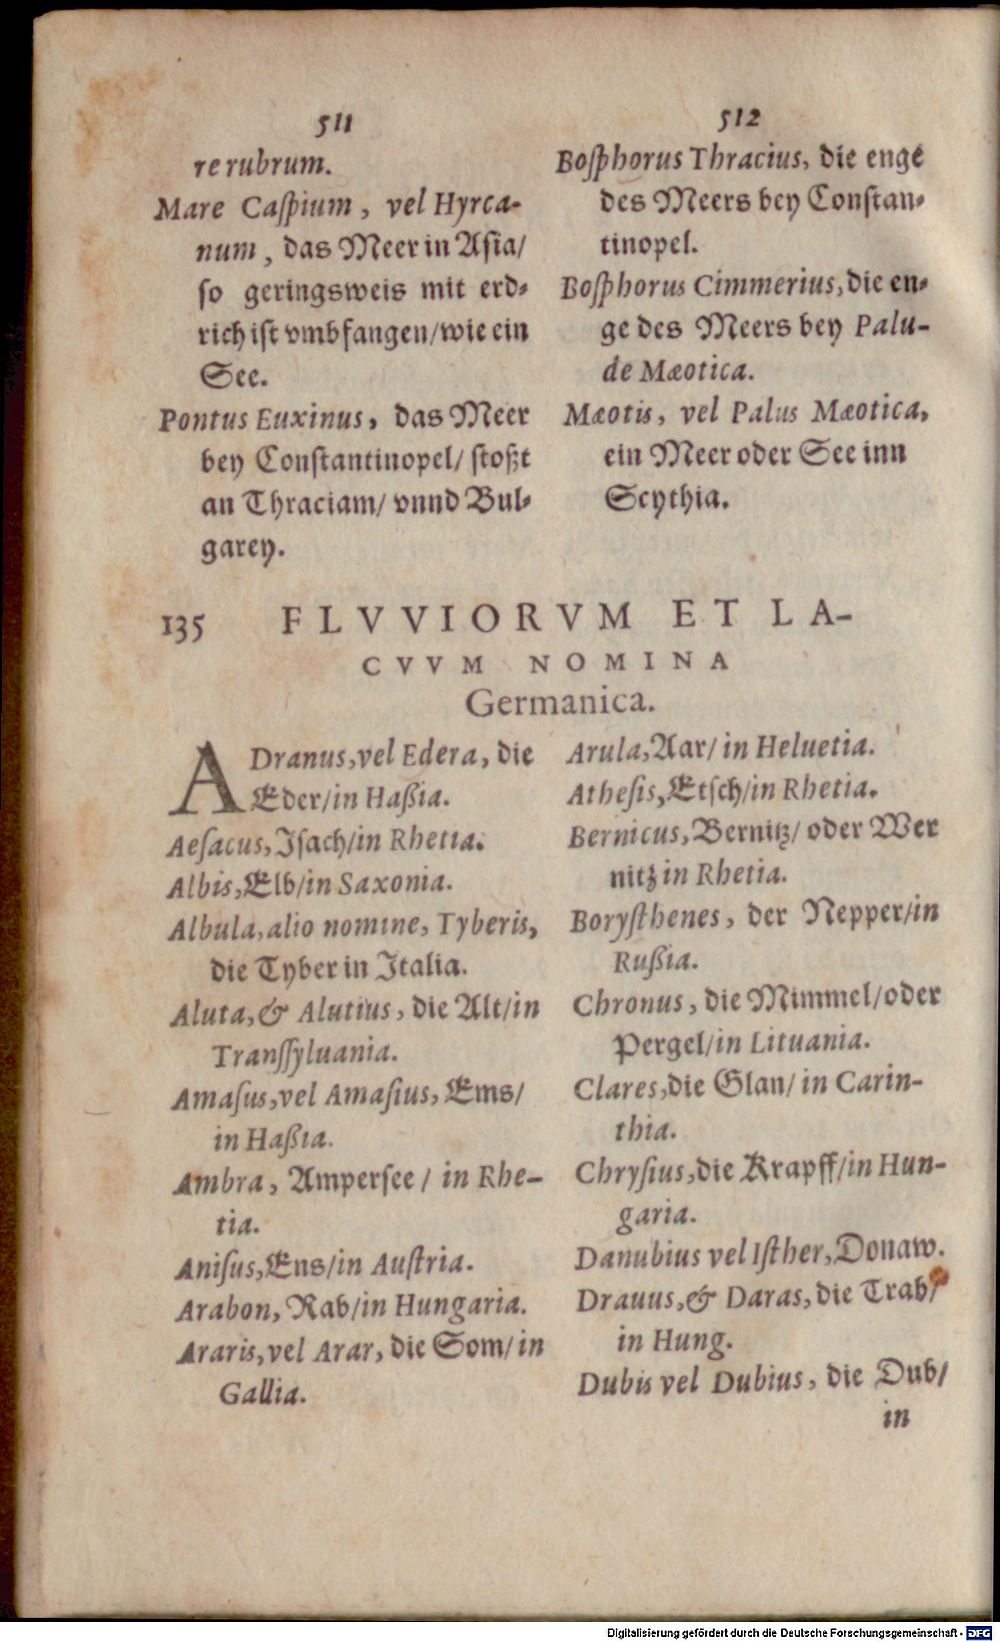 511
re rubrum.
Mare Caſpium, vel Hyrca-
num, das Meer in Aſia/
ſo geringsweis mit erd-
rich iſt vmbfangen/wie ein
See.
Pontus Euxinus, das Meer
bey Conſtantinopel/ ſtoßt
an Thraciam/ vnnd Bul-
garey.
512
Boſphorus Thracius, die enge
des Meers bey Conſtan-
tinopel.
Boſphorus Cimmerius, die en-
ge des Meers bey Palu-
de Mæotica.
Mæotis, vel Palus Mæotica,
ein Meer oder See inn
Scythia.
135 FLVVIORVM ET LA-
CVVM NOMINA
Germanica.
ADranus, vel Edera, die
Eder/in Haßia.
Aeſacus, Iſach/in Rhetia.
Albis, Elb/in Saxonia.
Albula, alio nomine, Tyberis,
die Tyber in Italia.
Aluta, & Alutius, die Alt/in
Tranſſyluania.
Amaſus, vel Amaſius, Ems/
in Haßia.
Ambra, Amperſee/ in Rhe-
tia.
Aniſus, Ens/in Auſtria.
Arabon, Rab/in Hungaria.
Araris, vel Arar, die Som/in
Gallia.
Arula, Aar/ in Heluetia.
Atheſis, Etſch/in Rhetia.
Bernicus, Bernitz/ oder Wer
nitz in Rhetia.
Boryſthenes, der Nepper/in
Rußia.
Chronus, die Mimmel/oder
Pergel/in Lituania.
Clares, die Glan/ in Carin-
thia.
Chryſius, die Krapff/in Hun-
garia.
Danubius vel Iſther, Donaw.
Drauus, & Daras, die Trab/
in Hung.
Dubis vel Dubius, die Dub/
in
Digitalisierung gefördert durch die Deutsche Forschungsgemeinschaft - DFG